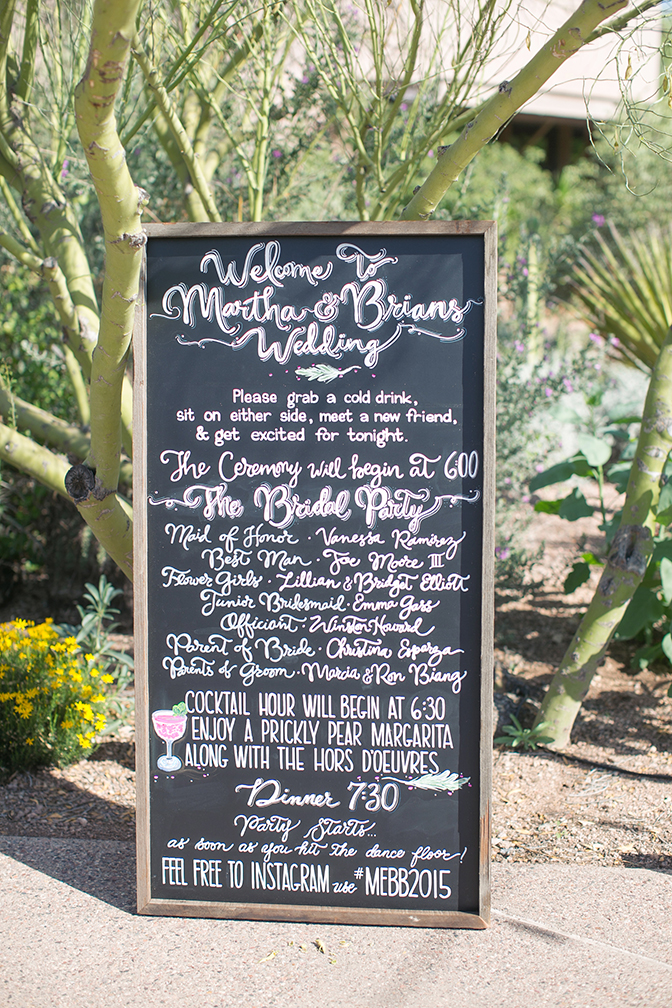 Welcome To
Martha & Brians
Wedding
Please grab a cold drink,
sit on either side, meet a new friend,
& get excited for tonight.
The Ceremony will begin at 6:00
The Bridal Party
Maid of Honor · Vanessa Ramirez
Best Man · Joe Moore III
Flower Girls · Lillian & Bridget Elliott
Junior Bridesmaid · Emma Gass
Officiant · Winston Howard
Parent of Bride · Christina Esparza
Parents of Groom · Marcia & Ron Biang
COCKTAIL HOUR WILL BEGIN AT 6:30
ENJOY A PRICKLY PEAR MARGARITA
ALONG WITH THE HORS D'OEUVRES
Dinner 7:30
Party Starts...
as soon as you hit the dance floor!
FEEL FREE TO INSTAGRAM use #MEBB2015